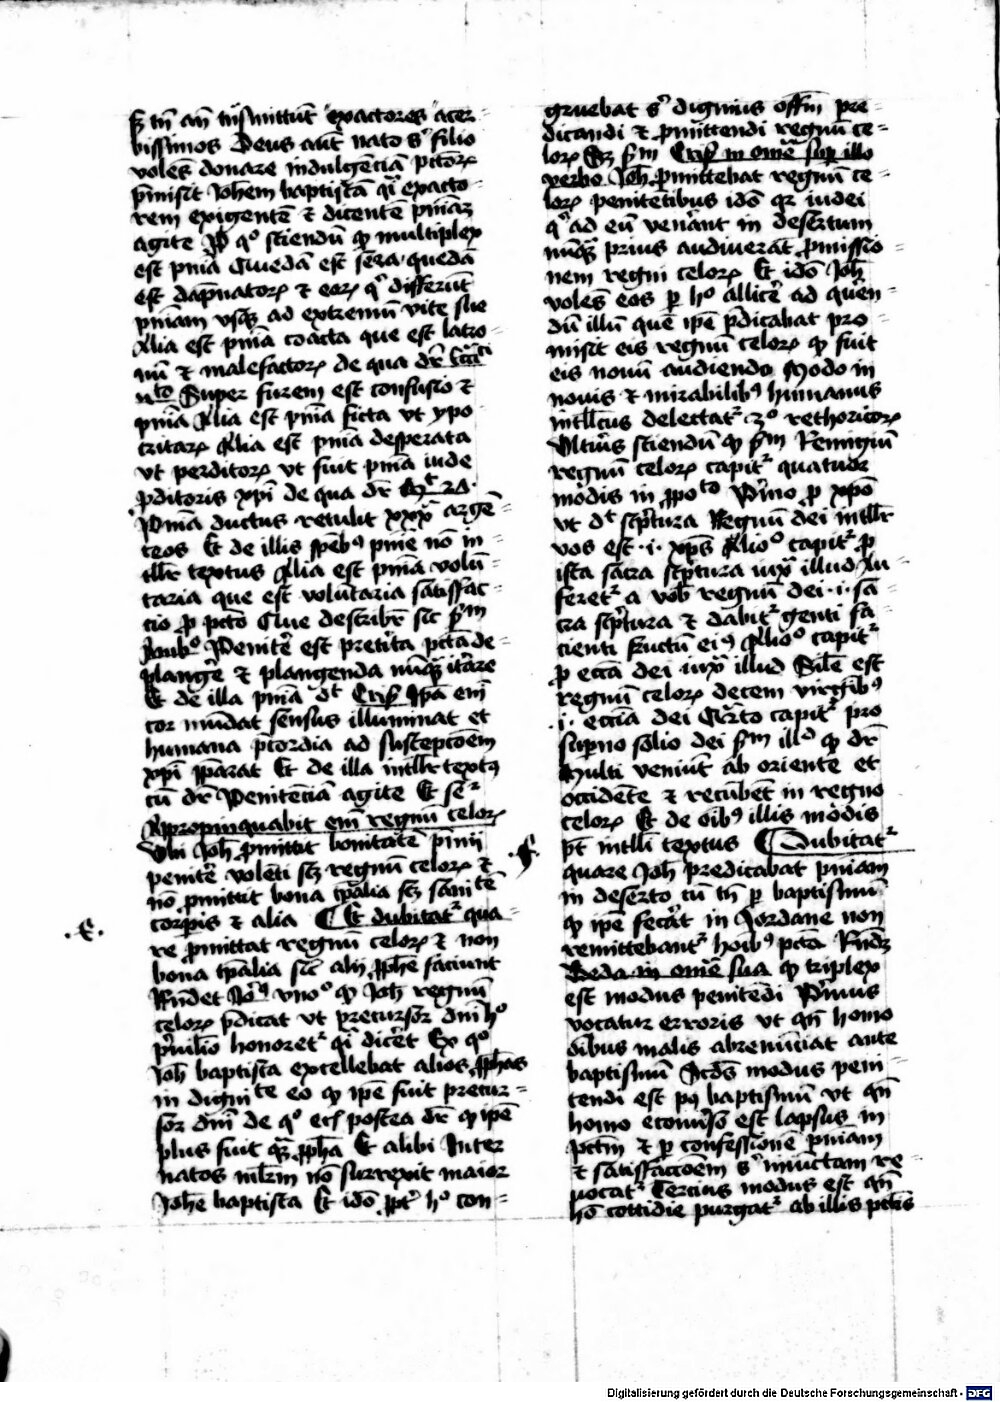 tn̄ an̄ tn̄smittūt exactores acer-
bissimos Deus aūt nato sᵒ filio
volēs donare indulgēciā pctōꝝ
p̄misit Joh̄em baptistā qͥ exacto-
rem exigentē ⁊ dicentē pnīaꝫ
agite Jᵒ qᵒ sciendū qͻ multiplex
est pnīa Quedā est sera quedā
est dāpnatorꝝ ⁊ eorꝝ qͥ differūt
pnīam vsqꝫ ad extremū vite sue
Alia est pnīa coacta que est latro-
nū ⁊ malefactorꝝ de qua dr̄ Ecc̄ci
vᵗᵒ Super furem est confusio ⁊
pnīa Alia est pnīa ficta vt ypo-
critarꝝ Alia est pnīa desperata
vt perditorꝝ vt fuit pnīa iude
ꝓditoris xpī de qua dr̄ Mᵗ 27
Pnīa ductus retulit xxx argē-
teos Et de illis spēbꝰ pnīe nō in-
tllr̄ textus Alia est pnīa volū-
taria que est volūtaria satisfac-
cio ꝓ pctō Que describr̄ sic sm̄
Ambᵒ Penitē est pretita pctā de-
plangē ⁊ plangenda nūqꝫ itāre
Et de illa pnīa dᵗ Crisᵒ ipa em̄
cor mūdat sensus illuminat et
humana p̄cordia ad susceptōem
xpī p̄parat Et de illa intllr̄ textꝰ
cū dr̄ Penitēciā agite Et seʳ
Appropinquabit em̄ regnū celoꝝ
Vbi Joh̄ ꝓmittit bonitatē pīnij
penitē volēti scꝫ regnū celorꝝ ⁊
nō ꝓmittit bona tpalia scꝫ sanitᵗē
corpis ⁊ alia Et dubitatʳ qua-
re ꝓmittat regnū celorꝝ ⁊ non
bona tpalia sic alij ꝓphē faciunt
Rn̄det vnoᵒ qͻ Joh̄ regnū
celorꝝ p̄dicat vt precursor dn̄i hᵒ
p̄uilīo honoretʳ qͥ dicēt Ex qᵒ
Joh̄ baptista excellebat alios ꝓphās
in dignitᵗe eo qͻ ipē fuit precur-
sor dn̄i de qᵒ postea dr̄ qͻ ipē
plus fuit qꝫ ꝓphā Et alibi Inter
natos mlr̄m nō surrexit maior
Joh̄e baptista Et idō ꝓpt hᵒ con-
gruebat sᵒ dignius offm̄ pre-
dicandi ⁊ ꝓmittendi regnū ce-
lorꝝ Sꝫ sm̄ Crisᵒ in omē sup illo
verbo Joh̄ ꝓmittebat regnū ce-
lorꝝ penitētibus idō qꝛ iudei
qͥ ad eū venāt in desertum
nūqꝫ prius audiuerāt ꝓmissio-
nem regni celorꝝ Et idō Joh̄
volēs eos ꝑ hᵒ allicē ad querē-
dū illū quē ipē p̄dicabat pro-
misit eis regnū celorꝝ qͻ fuit
eis nouū audiendo Modo in
nouis ⁊ mirabilibꝰ humanus
intllcus delectatʳ rethoricorꝝ
Vlterius sciendū qͻ sm̄ Remigiū
regnū celorꝝ capitʳ quatuor
modis in ꝓpoᵗᵒ P̄mo ꝓ xpō
vt dᵗ sc̄ptura Regnū dei intllr̄
vos est .i. xp̄s Alioᵒ capitʳ ꝓ
ista sacra sc̄ptura iuxᵃ illud Au-
feretʳ a vob̄ regnū dei .i. sa-
cra sc̄ptura ⁊ dabitʳ genti fa-
cienti fructū eiꝰ Alioᵒ capitʳ
ꝓ ecc̄a dei iuxᵃ illud Silē est
regnū celorꝝ decem virgībꝰ
.i. ecc̄ia dei Qᵃrto capitʳ pro
supno solio dei sm̄ illᵈ qͻ dr̄
Multi veniūt ab oriente et
occidēte ⁊ recūbēt in regno
celorꝝ Et de oībꝰ illis modis
pt̄ intlli textus Dubitatʳ
quare Joh̄ predicabat pnīam
in deserto cū tn̄ ꝑ baptismū
qͻ ipē fecāt in Jordane non
remittebantʳ hoībꝰ pctā Rn̄dꝫ
Beda in omē sua qͻ triplex
est modus penitēdi P̄mus
vocatur erroris vt qn̄ homo
oībus malis abrenūciat ante
baptismū Scdūs modus peni-
tendi est pꝰ baptismū vt qn̄
homo ecōuerso est lapsus in
pctm̄ ⁊ ꝑ confessionē pnīam
⁊ satisfaccōem sᵒ iniuctam re-
uocatʳ Tercius modus est qn̄
hō cottidie purgatʳ ab illis pctīs
.e.
.f.
Digitalisierung gefördert durch die Deutsche Forschungsgemeinschaft - DFG